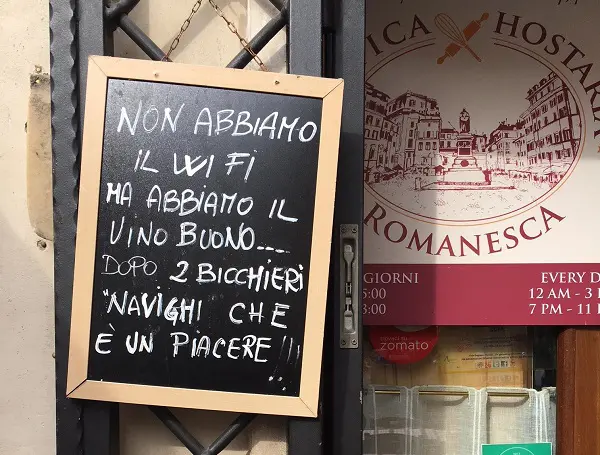 NON ABBIAMO
IL WI FI
MA ABBIAMO IL
VINO BUONO....
DOPO 2 BICCHIERI
"NAVIGHI CHE
È UN PIACERE!!!
HOSTARIA
ROMANESCA
GIORNI
EVERY
12 AM - 3
7 PM - 11
zomato